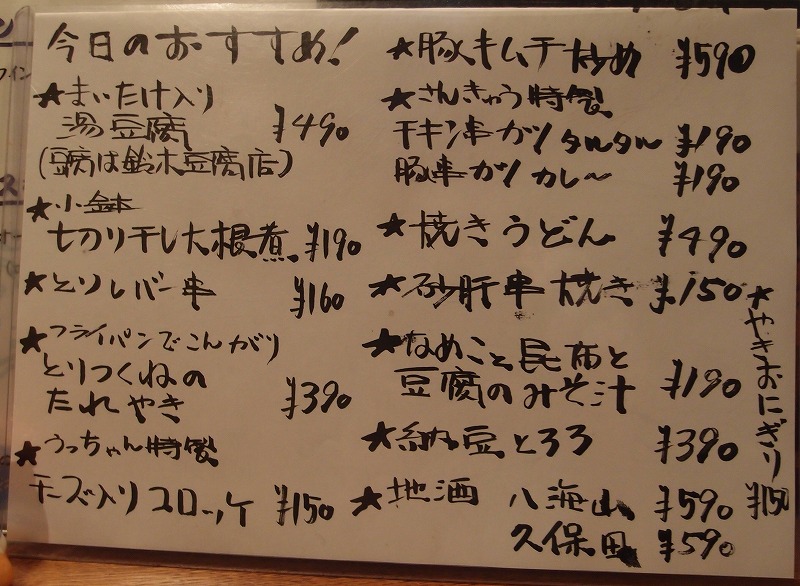 今日のおすすめ!
★まいたけ入り
湯豆腐 ¥490
(豆腐は鈴木豆腐店)
★小鉢
切り干し大根煮 ¥190
★とりレバー串 ¥160
★フライパンでこんがり
とりつくねの
たれやき ¥390
★うっちゃん特製
チーズ入りコロッケ ¥150
★豚キムチ炒め ¥590
★さんきゅう特製
チキン串カツタルタル ¥190
豚串カツカレー ¥190
★焼きうどん ¥490
★砂肝串焼き ¥150
★なめこと昆布と
豆腐のみそ汁 ¥190
★納豆とろろ ¥390
★地酒 八海山 ¥590
久保田 ¥590
★やきおにぎり ¥150